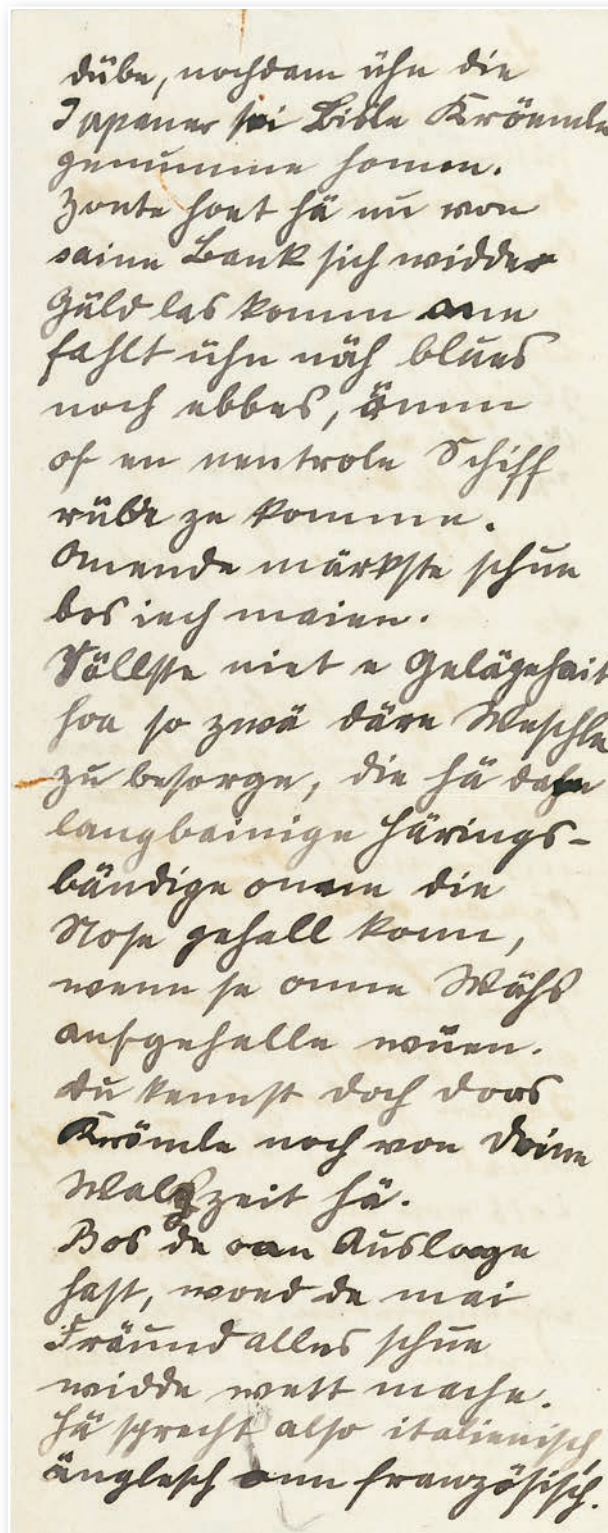 dübe, nochdam ühn die
Japaner sei Bißle Kröemle
genumme homen.
hoat hä nu von
seine Bank sich widder
Gäld las komm onn
fahlt ühn näh blues
noch ebbes, ömm
of en neutrole Schiff
rübe ze komme.
Omende märkste schue
bos iech maien.
Söllste niet e Gelägehait
hoa so zwä däre Weschle
zu besorge, die hä
langbainige Härings-
bändige die
Nose gehall konn,
wenn se onne Wähs
aufgehalle wüen.
Du kennst doch doos
Krömle noch von deine
Walzzeit hä.
Bos de oan Ausloage
hast, woed de mai
Fräund alles schue
widde wett mache.
Hä sprecht also italienisch,
änglesch onn französisch.